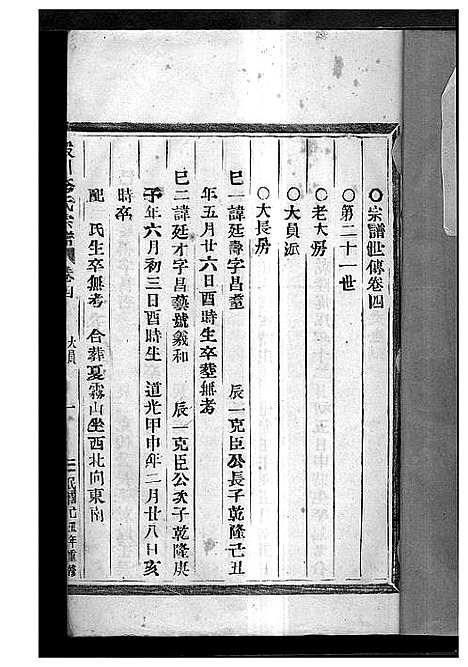 〇宗譜世傳卷四
〇第二十一世
〇老大房
〇大員派
〇大長房
巳一諱廷壽字昌耋 辰一克臣公長子乾隆己丑
年五月廿六日酉時生卒塟無考
巳二諱廷才字昌藝號義和 辰一克臣公次子乾隆庚
子年六月初三日酉時生 道光甲申年二月廿八日亥
時卒
配 氏生卒無考 合葬夏霧山坐西北向東南
氏宗譜 卷四 大員 一 民國乙丑年重修